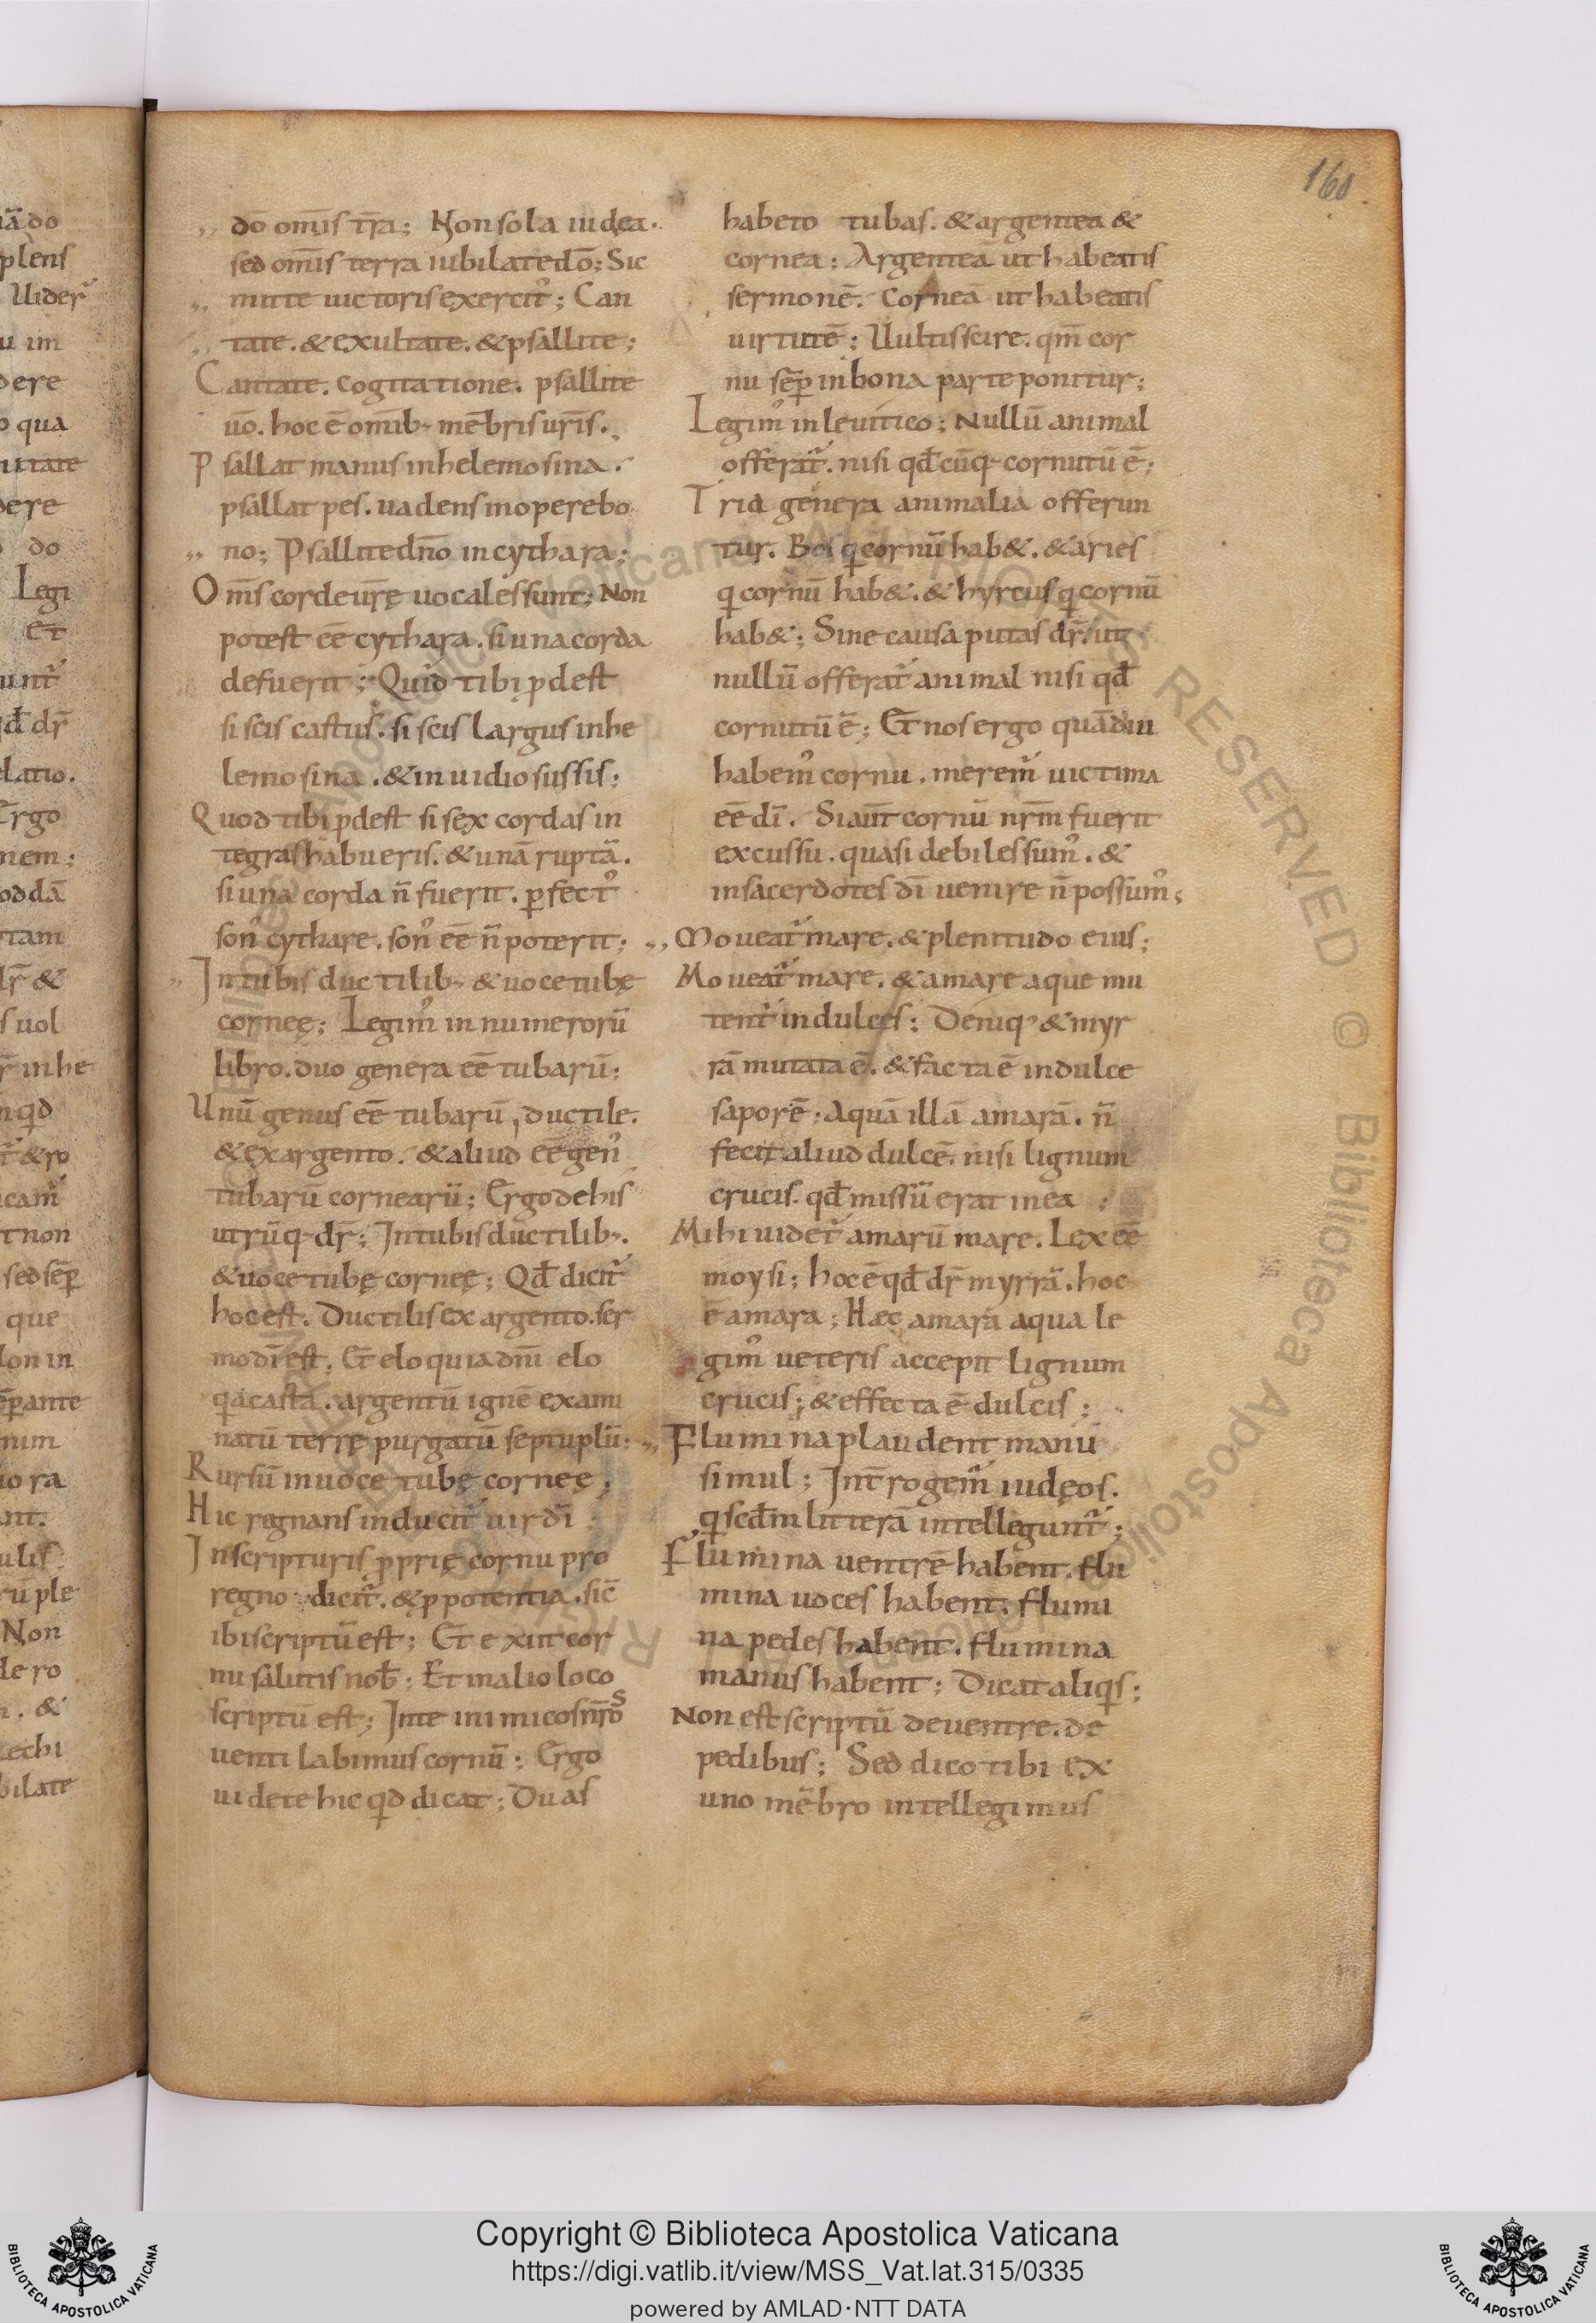 160
ua᷃do
plens
Uider᷑
u im
dere
o qua
utate
dere
do
Legi
Et
unt᷑
qđ dr̄
elatio.
Ergo
nem;
oddā
tam
dr̄ &
s uol
r̄ inhe
nqd
t᷑ & ro
icam᷑
t non
sed sēp
que
lon in
ēp ante
nim
io ra
nt.
ulis
rū ple
Non
de ro
. &
echi
bilate
,, dō om̄is tr̄a; Non sola iudęa.
sed om̄is terra iubilate dō; Sic
,, mitte uictoris exercit᷒; Can
,, tate. & exultate. & psallite;
Cantate. cogitatione. psallite
uō. hoc ē omīb; mēbris ur̄is.
Psallat manus in helemosina.
psallat pes. uadens in opere bo
,, no; Psallite dn̄o in cythara;
Om̄s corde ur̄ę uocales sunt; Non
potest eē cythara. si una corda
defuerit; Quid tibi ꝓdest
si scis castus. si scis largus in he
lemosina. & inuidiosus sis;
Quod tibi ꝓdest si sex cordas in
tegras habueris. & unā ruptā.
si una corda n̄ fuerit. ꝑfect᷒
son᷒ cythare. son᷒ eē n̄ poterit;
,, In tubis ductilib; & uoce tubę
corneę; Legim᷒ in numerorū
libro. duo genera eē tubarū;
Unū genus eē tubarū, ductile.
& ex argento. & aliud eē gen᷒
tubarū cornearū; Ergo de his
utrūq; dr̄; In tubis ductilib;.
& uoce tubę corneę; Qđ dicit᷑
hoc est. Ductilis ex argento. ser
mo dī est. Et eloquia dn̄i elo
qa casta. argentū ignē exami
natū terrę purgatū septuplū;
Rursū in uoce tubę corneę;
Hic regnans inducit᷑ uir dī;
In scripturis ꝓprię cornu pro
regno dicit᷑. & ꝓ potentia. sic̄
ibi scriptū est; Et exiit cor
nu salutis nob̄; Et in alio loco
scriptū est; In te inimicos nr̄os
uentilabimus cornū; Ergo
uidete hic qd dicat; Duas
habeto tubas. & argentea &
cornea; Argenteā ut habeatis
sermonē. Corneā ut habeatis
uirtutē; Uultis scire. qm̄ cor
nu sēp in bona parte ponitur;
Legim᷒ in leuitico; Nullū animal
offerat᷑. nisi qđcūq; cornutū ē;
Tria genera animalia offerun
tur. Boi q cornū hab&. & aries
q cornū hab&. & hyrcus q cornū
hab&; Sine causa putas dr̄. ut
nullū offerat᷑ animal nisi qđ
cornutū ē; Et nos ergo quādiu
habem᷒ cornu. merem᷑ uictima
eē dī. Si aūt cornū nr̄m fuerit
excussu. quasi debiles sum᷒. &
in sacerdotes dī uenire n̄ possum᷒;
,, Moueat᷑ mare. & plenitudo eius;
Moueat᷑ mare. & amare aque mu
tent᷑ in dulces; Deniq; & myr
rā mutata ē. & facta ē in dulce
saporē; Aquā illā amarā. n̄
fecit aliud dulcē. nisi lignum
crucis. qđ missū erat in ea;
Mihi uidet᷑ amarū mare. Lex eē
moysi; hoc ē qđ dr̄ myrrā. hoc
ē amara; Hæc amara aqua le
gim᷒ ueteris accepit lignum
crucis; & effecta ē dulcis;
,, Flumina plaudent manū
simul; Int̄rogem᷑ iudęos.
q scđm litterā intellegunt᷑;
Flumina uentrē habent. flu
mina uoces habent. flumi
na pedes habent. flumina
manus habent; Dicat aliqis;
Non est scriptū de uentre. de
pedibus; Sed dico tibi ex
uno mēbro intellegimus
Copyright © Biblioteca Apostolica Vaticana
https://digi.vatlib.it/view/MSS_Vat.lat.315/0335
powered by AMLAD·NTT DATA
BIBLIOTECA APOSTOLICA VATICANA
BIBLIOTECA APOSTOLICA VATICANA